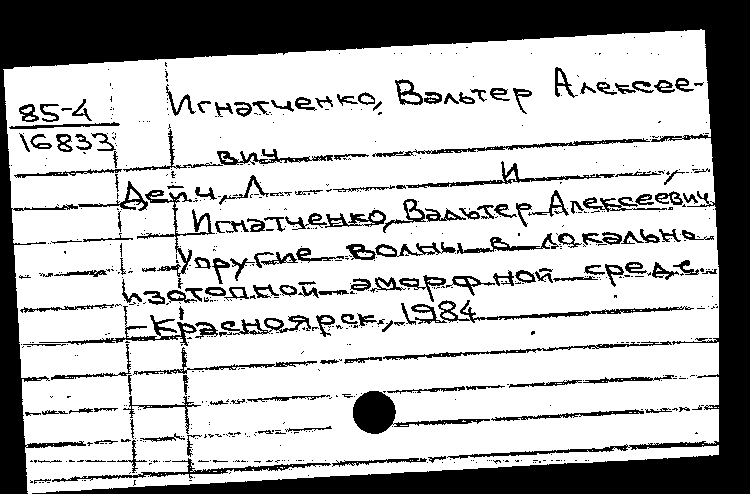 85-4
16833
Игнатченко, Вальтер Алексее-
вич
Дейч, Л И ,
Игнатченко, Вальтер Алексеевич
Упругие волны в локально
изотопной аморфной среде.
- Красноярск, 1984